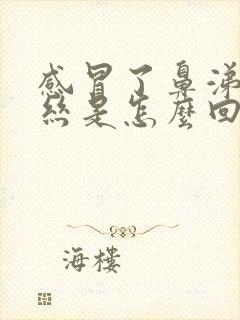 感冒了鼻涕
丝是怎麼回
海樓